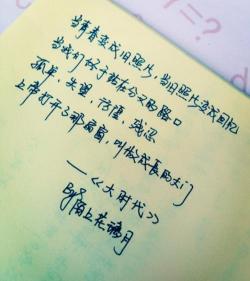 当青春变成旧照片，当旧照片变成回忆
当我们终于站在分叉的路口
孤单、失望、彷徨、残忍
上帝打开了那扇窗，叫做成长的大门
——《大时代》
By：陌上花
月